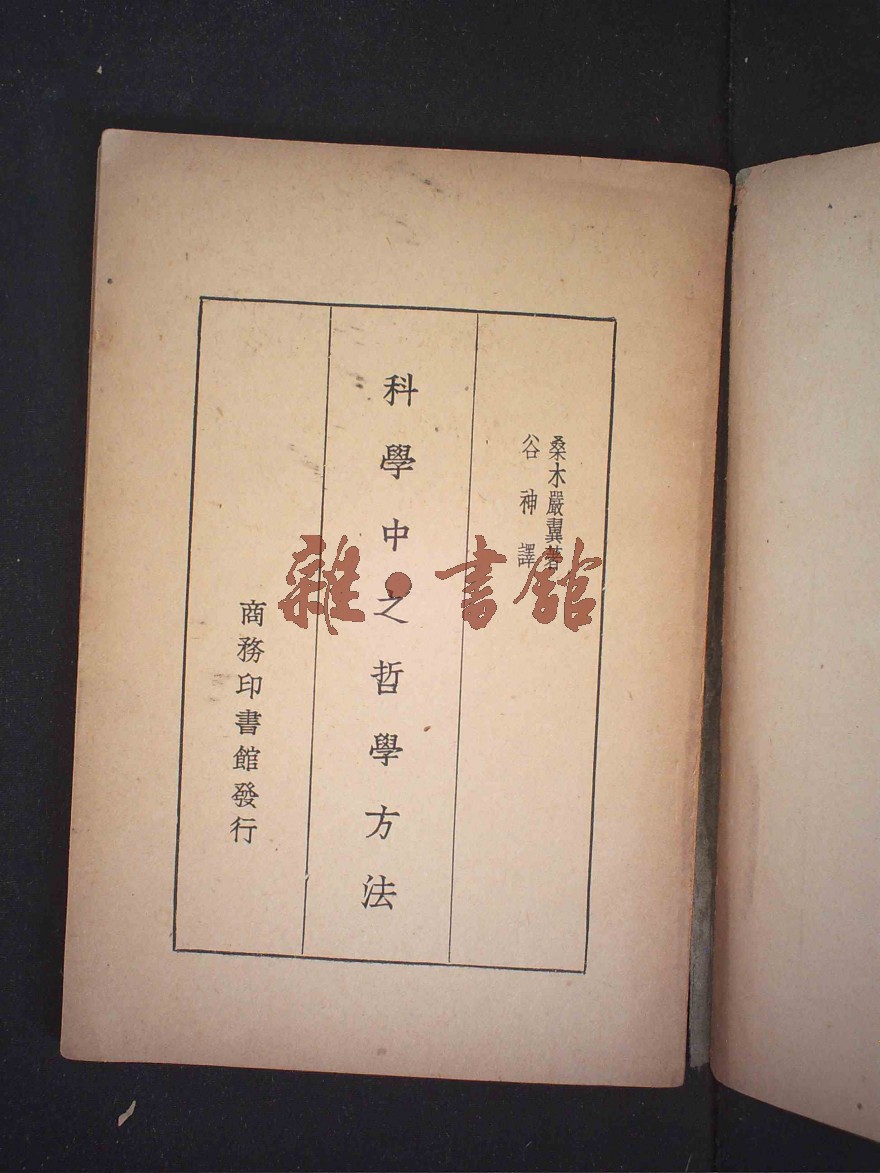 桑木嚴翼著
谷神譯
科學中之哲學方法
商務印書館發行
雜·書館